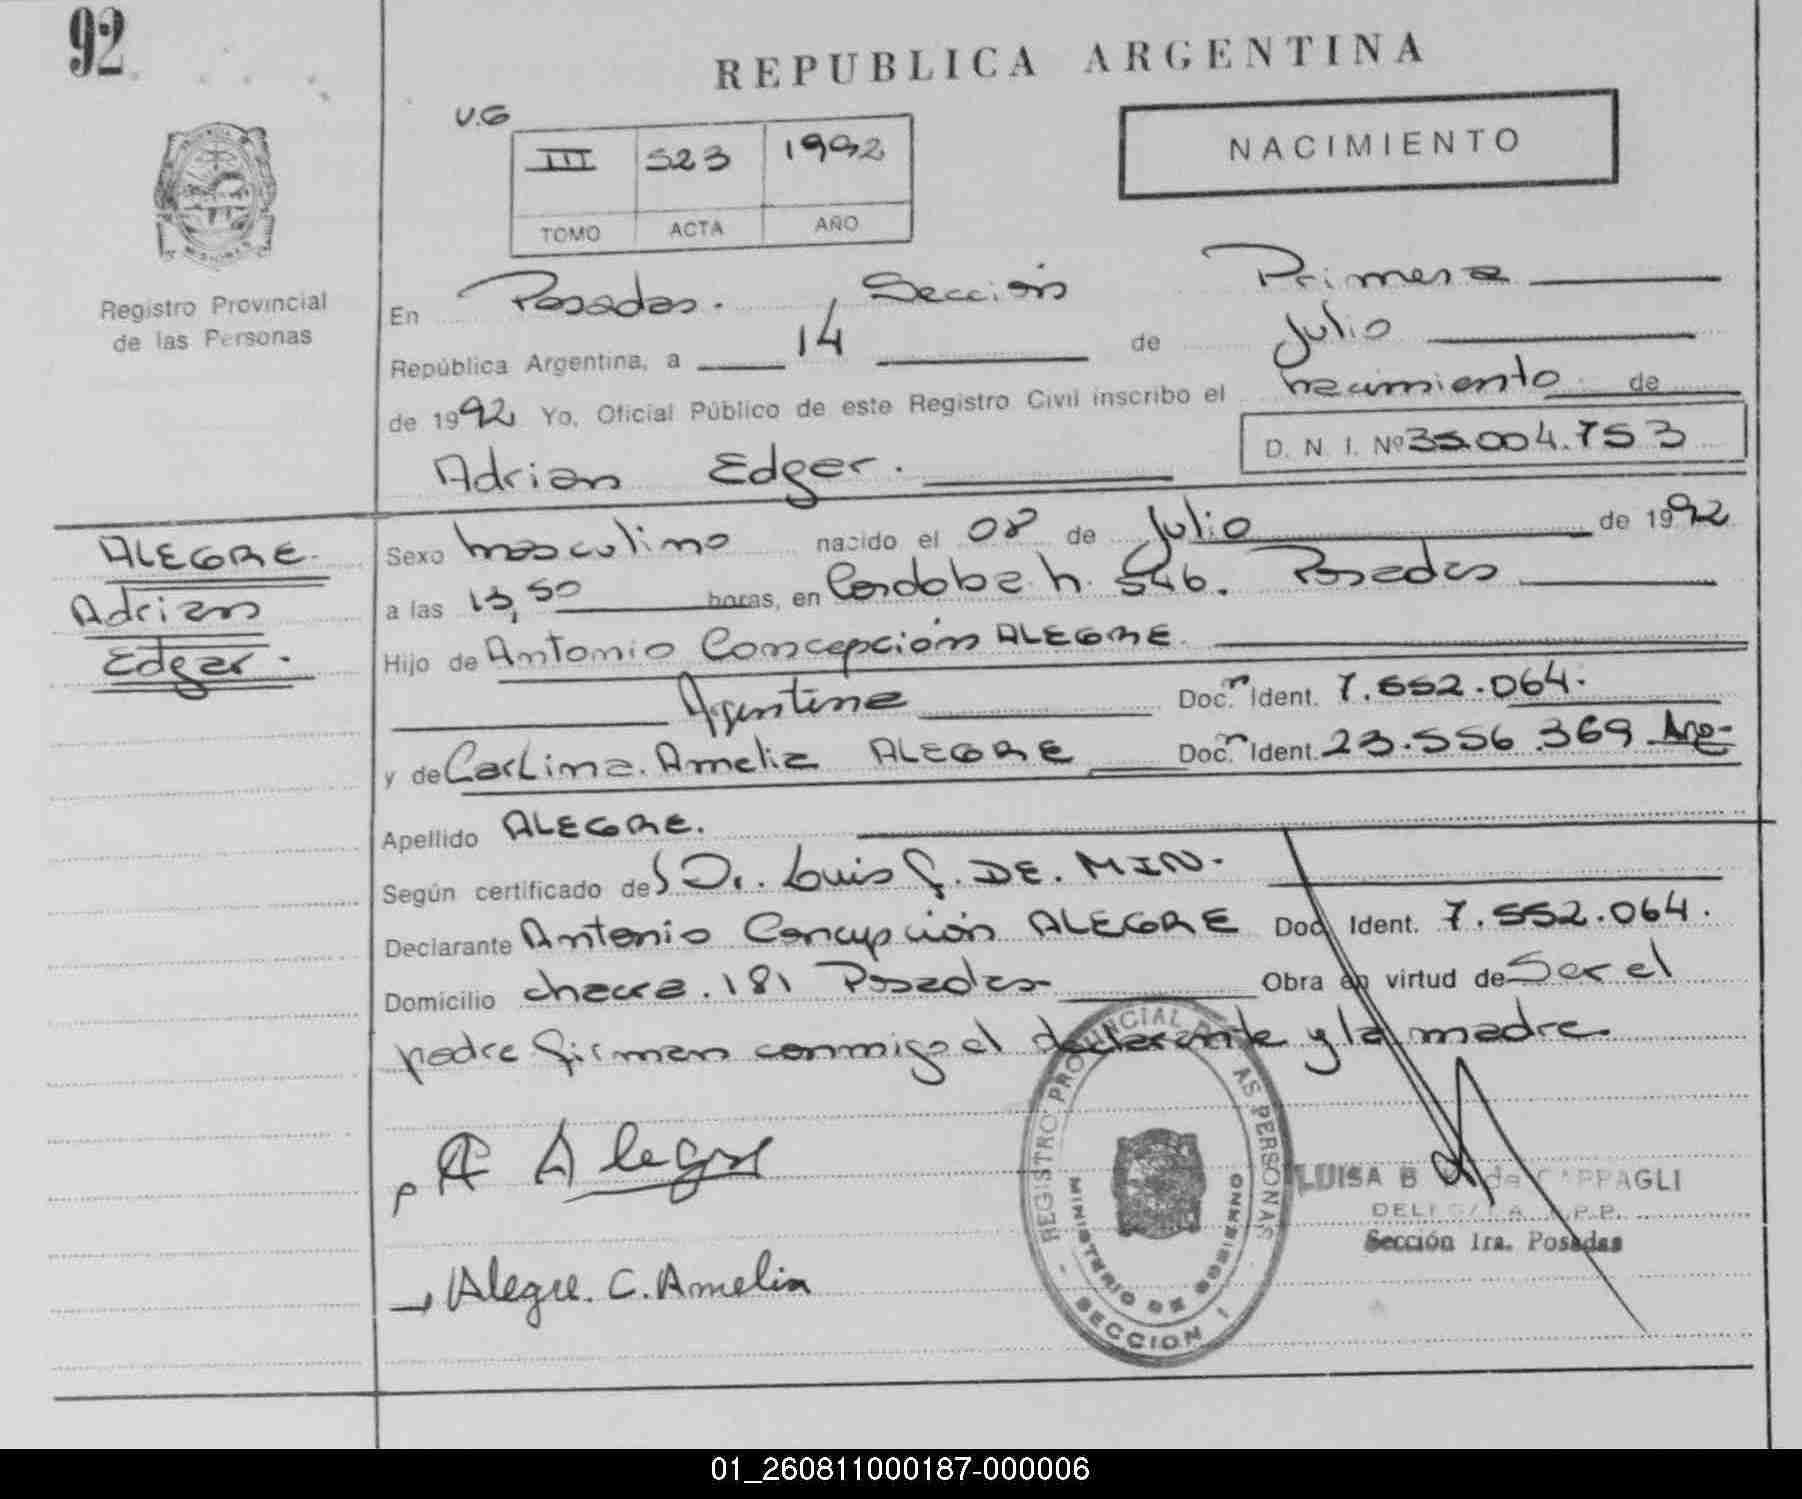 92
REPUBLICA ARGENTINA
V.G
III 523 1992
TOMO ACTA AÑO
NACIMIENTO
Registro Provincial
de las Personas
En Posadas. Sección Primera
República Argentina, a 14 de Julio
de 1992 Yo, Oficial Público de este Registro Civil inscribo el nacimiento de
D. N. I. Nº 35.004.753
Adrian Edgar.
ALEGRE.
Adrian
Edgar.
Sexo masculino nacido el 08 de Julio de 1992
a las 13,50 horas, en Cordoba n. 546. Posadas
Hijo de Antonio Concepción ALEGRE
Argentina Doc. Ident. 7.552.064.
y de Carlina. Amelia ALEGRE Doc. Ident. 23.556.369 Arg-
Apellido ALEGRE.
Según certificado de Dr. Luis G. DE. MIN.
Declarante Antonio Concepción ALEGRE Doc. Ident. 7.552.064.
Domicilio chacra. 181 Posadas Obra en virtud de Ser el
padre firman conmigo el declarante y la madre.
A Alegre
Alegre. C. Amelia
REGISTRO PROVINCIAL DE LAS PERSONAS
MINISTERIO DE GOBIERNO
- SECCION I
LUISA B de CAPPAGLI
DELEGADA R.P.P.
Sección 1ra. Posadas
01_260811000187-000006